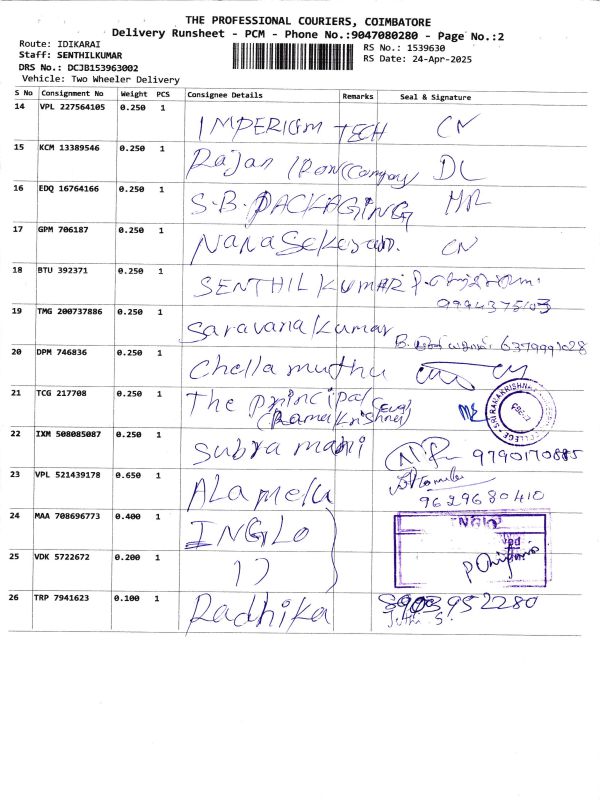 THE PROFESSIONAL COURIERS, COIMBATORE
Delivery Runsheet - PCM - Phone No.:9047080280 - Page No.:2
Route: IDIKARAI
RS No.: 1539630
Staff: SENTHILKUMAR
RS Date: 24-Apr-2025
DRS No.: DCJB153963002
Vehicle: Two Wheeler Delivery
S No Consignment No Weight PCS Consignee Details Remarks Seal & Signature
14 VPL 227564105 0.250 1 IMPERIGM TECH CN
15 KCM 13389546 0.250 1 Rajan Iron (Company) DL
16 EDQ 16764166 0.250 1 S.B. PACKAGING MR
17 GPM 706187 0.250 1 NanaSekaran. CN
18 BTU 392371 0.250 1 SENTHIL KUMAR
9994375103
19 TMG 200737886 0.250 1 Saravana Kumar
6379991028
20 DPM 746836 0.250 1 Chella muthu
21 TCG 217708 0.250 1 The principal
(Rama Krishna)
22 IXM 508085087 0.250 1 Subra mani 9790170885
23 VPL 521439178 0.650 1 ALamelu
9629680410
24 MAA 708696773 0.400 1 INGLO
25 VDK 5722672 0.200 1
26 TRP 7941623 0.100 1 Radhika 8903952280